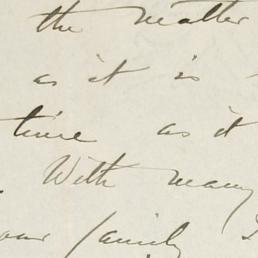 the matter
as it is
time as it
With many
your family I